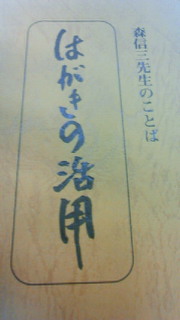 森信三先生のことば
はがきの活用